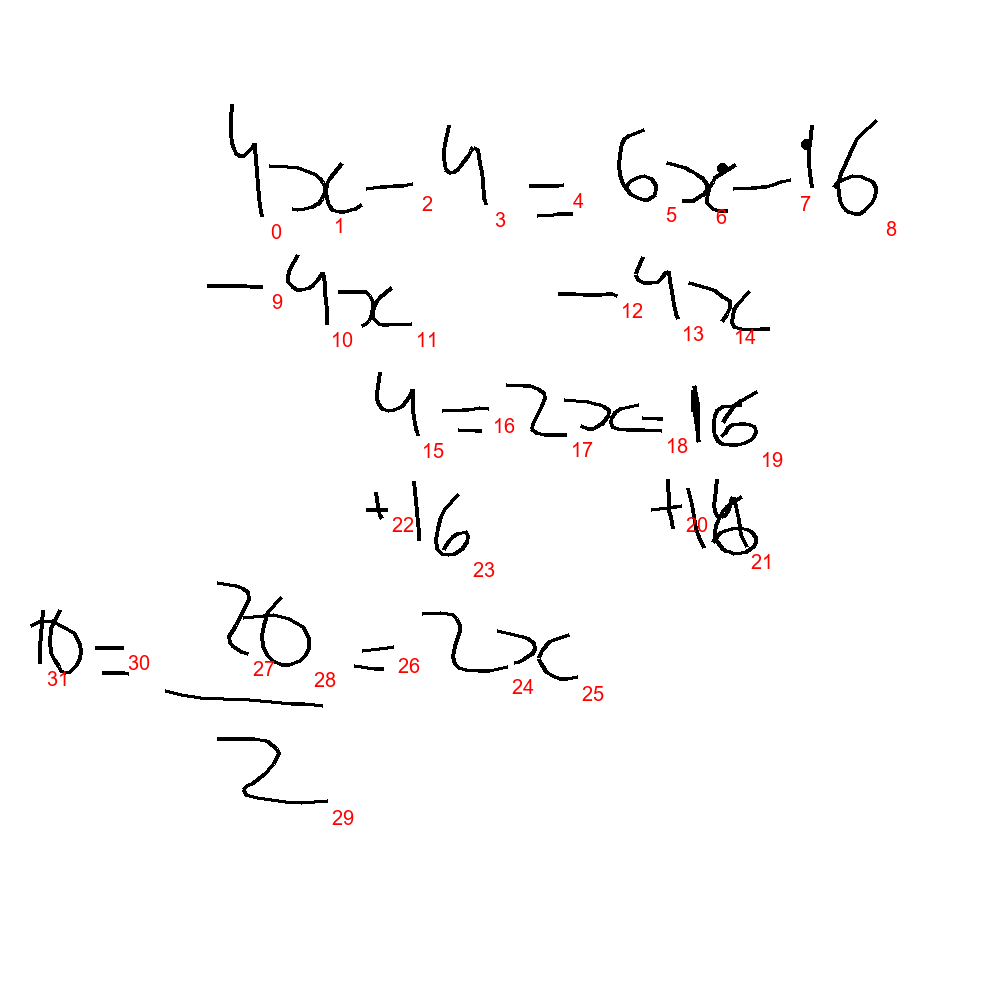 4x - 4 = 6x - 16
0 1 2 3 4 5 6 7 8
- 4x - 4x
9 10 11 12 13 14
4 = 2x - 16
15 16 17 18 19
+ 16 + 16
22 23 20 21
10 = 20 = 2x
31 30 27 28 26 24 25
2
29